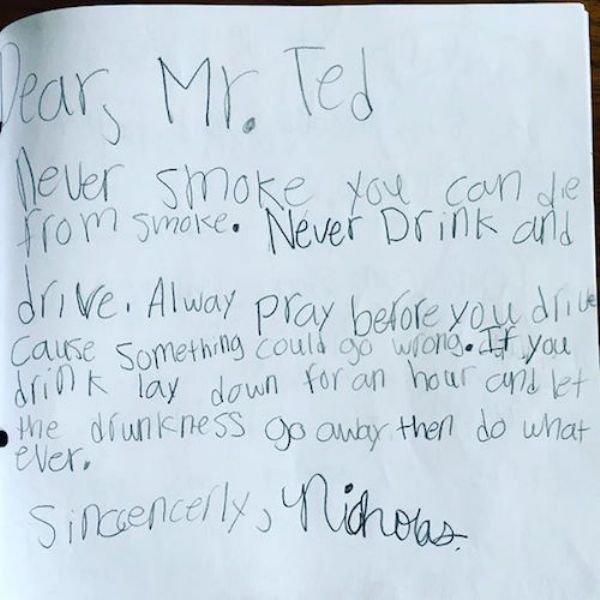 Dear, Mr. Ted
Never smoke you can die
from smoke. Never Drink and
drive. Alway pray before you drive
cause something could go wrong. If you
drink lay down for an hour and let
the drunkness go away then do what
ever.
Sinccencerly, Nicholas.